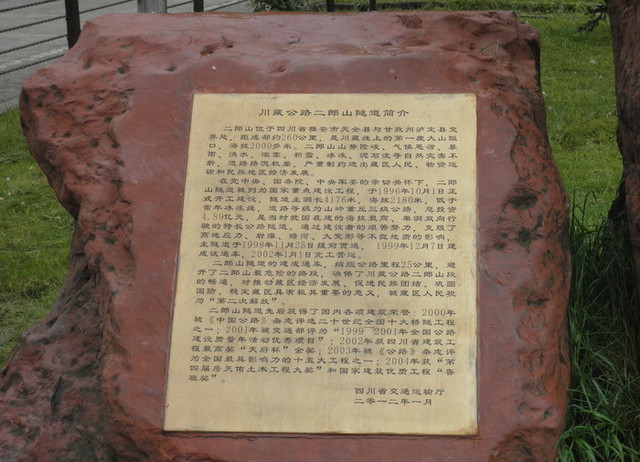 川藏公路二郎山隧道简介
二郎山位于四川省雅安市天全县与甘孜州泸定县交
界处，距成都约260公里，是川藏线上的第一座大山隘
口，海拔2000多米。二郎山山势险峻、气候恶劣，暴
雨、洪水、浓雾、积雪、冰冻、泥石流等自然灾害不
断，道路路况极差，严重制约进出藏区人民、物资运
输和民族地区经济发展。
在党中央、国务院、中央军委的亲切关怀下，二郎
山隧道被列为国家重点建设工程，于1996年10月1日正
式开工建设，隧道主洞长4176米，海拔2180米，低于
常年冰冻线，道路等级为山岭重丘三级公路，总投资
4.89亿元，是当时我国在建的海拔最高、单洞双向行
驶的特长公路隧道。通过建设者的艰苦努力，克服了
高地应力、岩爆、暗河、大变形等不良地质的影响，
主隧道于1998年11月25日提前贯通，1999年12月7日建
成试通车，2002年1月1日完工营运。
二郎山隧道的建成通车，缩短公路里程25公里，避
开了二郎山最危险的路段，确保了川藏公路二郎山段
的畅通，对推动藏区经济发展、促进民族团结、巩固
国防、稳定藏区具有极其重要的意义，被藏区人民视
为“第二次解放”。
二郎山隧道先后获得了国内各项建筑荣誉：2000年
被《中国公路》杂志评选二十世纪全国十大桥隧工程
之一；2001年被交通部评为“1999—2001年全国公路
建设质量年活动优秀项目”；2002年获四川省建筑工
程最高奖“天府杯”金奖；2003年被《公路》杂志评
为全国最具影响力的十五大工程之一；2004年获“第
四届詹天佑土木工程大奖”和国家建筑优质工程“鲁
班奖”。
四川省交通运输厅
二零一二年一月